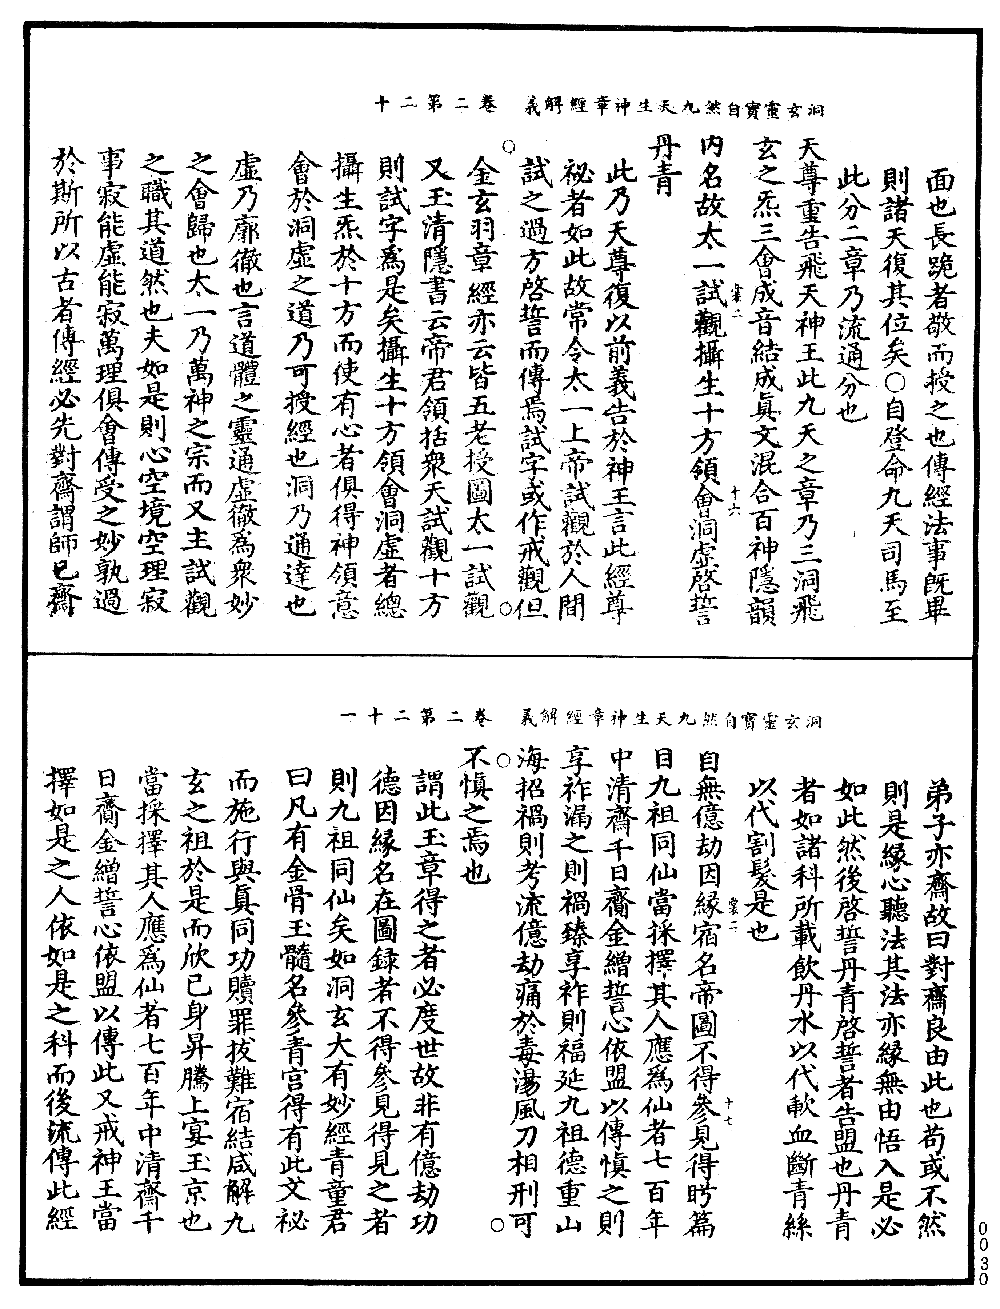 洞玄靈寶自然九天生神章經解義　卷二第二十
面也長跪者敬而授之也傳經法事既畢
則諸天復其位矣○自登命九天司馬至
此分二章乃流通分也
天尊重告飛天神王此九天之章乃三洞飛
玄之炁三會成音結成眞文混合百神隱韻
内名故太一試觀攝生十方領會洞虛啓誓
丹青
此乃天尊復以前義告於神王言此經尊
祕者如此故常令太一上帝試觀於人間
試之過方啓誓而傳焉試字或作戒觀但
○金玄羽章經亦云皆五老授圖太一試觀○
又玉清隱書云帝君領括衆天試觀十方
則試字爲是矣攝生十方領會洞虛者總
攝生炁於十方而使有心者俱得神領意
會於洞虛之道乃可授經也洞乃通達也
虛乃廓徹也言道體之靈通虛徹爲衆妙
之會歸也太一乃萬神之宗而又主試觀
之職其道然也夫如是則心空境空理寂
事寂能虛能寂萬理俱會傳受之妙孰過
於斯所以古者傳經必先對齋謂師已齋
棠二
十六
洞玄靈寶自然九天生神章經解義　卷二第二十一
弟子亦齋故曰對齋良由此也苟或不然
則是緣心聽法其法亦緣無由悟入是必
如此然後啓誓丹青啓誓者告盟也丹青
者如諸科所載飲丹水以代歃血斷青絲
以代割髮是也
自無億劫因緣宿名帝圖不得參見得眄篇
目九祖同仙當採擇其人應爲仙者七百年
中清齋千日齎金繒誓心依盟以傳慎之則
享祚漏之則禍臻享祚則福延九祖德重山
海招禍則考流億劫痛於毒湯風刀相刑可
○不慎之焉也
謂此玉章得之者必度世故非有億劫功○
德因緣名在圖録者不得參見得見之者
則九祖同仙矣如洞玄大有妙經青童君
曰凡有金骨玉髓名參青宫得有此文祕
而施行與真同功贖罪拔難宿結咸解九
玄之祖於是而欣已身昇騰上宴玉京也
當採擇其人應爲仙者七百年中清齋千
日齎金繒誓心依盟以傳此又戒神王當
擇如是之人依如是之科而後流傳此經
棠二
十七
0030